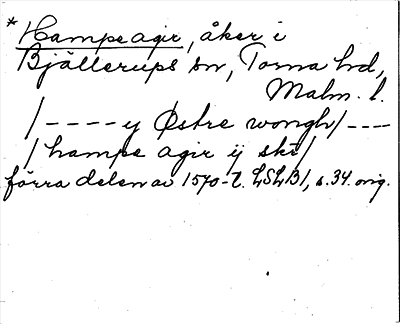 *Hampe agir, åker i
Bjällerups sn, Torna hd,
Malm. l.
/ - - - - y Østre wongh / - - -
/ hampe agir ij ski /
förra delen av 1570-t. LSLB1, s. 34. orig.